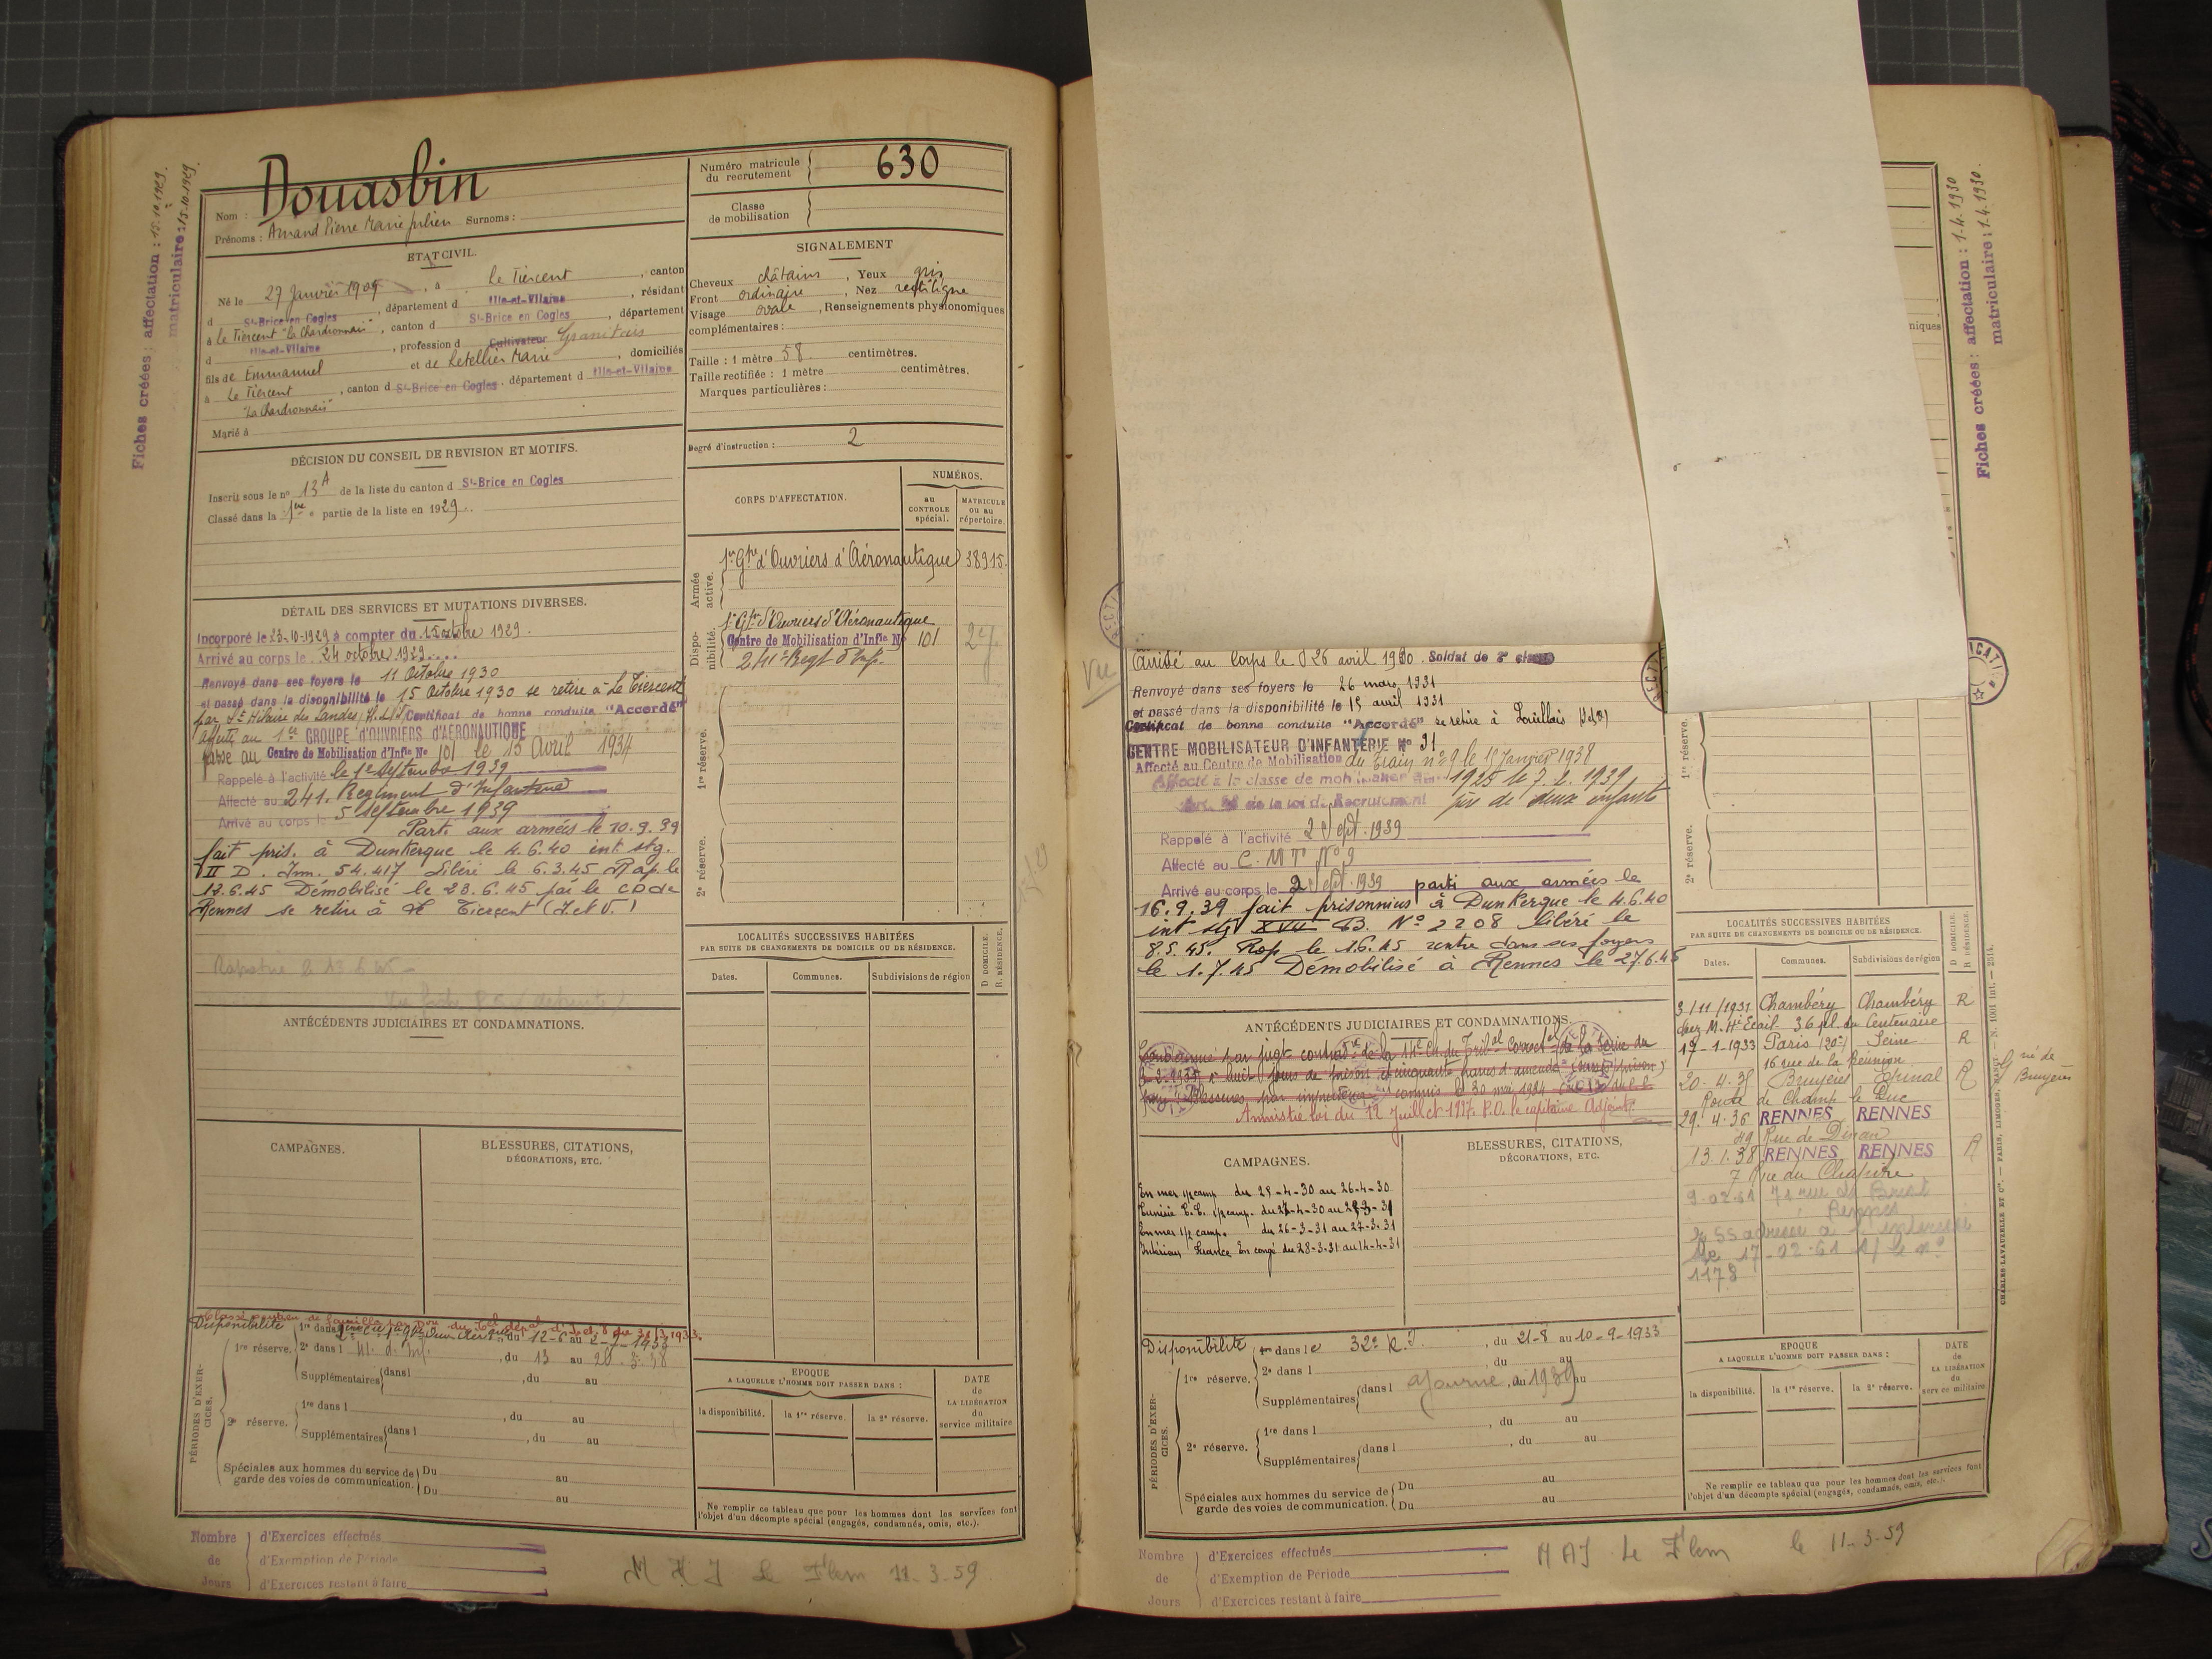 Fiches créées : affectation : 15.10.1929.
matriculaire : 15.10.1929.
Nom : Douasbin
Prénoms : Amand Pierre Marie Julien Surnoms :
Numéro matricule du recrutement 630
Classe de mobilisation
ETAT CIVIL.
Né le 27 Janvier 1909, à Le Tiercent, canton
d St-Brice en Cogles, département d Ille-et-Vilaine, résidant
à Le Tiercent "La Chardronnais", canton d St-Brice en Cogles, département
d Ille-et-Vilaine, profession d Cultivateur
fils de Emmanuel et de Letellier Marie, domiciliés
à Le Tiercent, canton d St-Brice en Cogles, département d Ille-et-Vilaine
"La Chardronnais"
Marié à
SIGNALEMENT
Cheveux châtains, Yeux gris
Front ordinaire, Nez rectiligne
Visage ovale, Renseignements physionomiques
complémentaires :
Taille : 1 mètre 58 centimètres.
Taille rectifiée : 1 mètre centimètres.
Marques particulières :
Degré d'instruction : 2
DÉCISION DU CONSEIL DE REVISION ET MOTIFS.
Inscrit sous le no 13 A de la liste du canton d St-Brice en Cogles
Classé dans la 1ère partie de la liste en 1929.
CORPS D'AFFECTATION.
NUMÉROS.
au CONTROLE spécial.
MATRICULE ou au répertoire.
Armée active.
1er Gpe d'Ouvriers d'Aéronautique 38915.
Disponibilité.
1er Gpe d'Ouvriers d'Aéronautique
Centre de Mobilisation d'Infie No 101
241e Regt d'Inf.
1re réserve.
2e réserve.
DÉTAIL DES SERVICES ET MUTATIONS DIVERSES.
Incorporé le 23-10-1929 à compter du 15 octobre 1929.
Arrivé au corps le 24 octobre 1929
Renvoyé dans ses foyers le 11 Octobre 1930
et passé dans la disponibilité le 15 Octobre 1930 se retire à Le Tiercent
par St Hilaire des Landes Certificat de bonne conduite "Accordé"
Affecté au 1er GROUPE D'OUVRIERS D'AÉRONAUTIQUE
passé au Centre de Mobilisation d'Infie No 101 le 15 Avril 1934
Rappelé à l'activité le 1er Septembre 1939
Affecté au 241. Regiment d'Infanterie
Arrivé au corps le 5 Septembre 1939
Parti aux armées le 10.9.39
fait pris. à Dunkerque le 4.6.40 int. stg.
VI D. Imm. 54.417 Libéré le 6.3.45 Rap. le
12.6.45 Démobilisé le 28.6.45 par le CD de
Rennes se retire à Le Tiercent (I. et V.)
ANTÉCÉDENTS JUDICIAIRES ET CONDAMNATIONS.
LOCALITÉS SUCCESSIVES HABITÉES
PAR SUITE DE CHANGEMENTS DE DOMICILE OU DE RÉSIDENCE.
Dates. Communes. Subdivisions de région D. DOMICILE. R. RÉSIDENCE.
CAMPAGNES.
BLESSURES, CITATIONS, DÉCORATIONS, ETC.
PÉRIODES D'EXERCICES.
Disponibilité
1re réserve. 1re dans l du 12-6 au 2-7-1933
2e dans l, du 13 au
Supplémentaires dans l, du au
2e réserve. 1re dans l, du au
Supplémentaires dans l, du au
Spéciales aux hommes du service de garde des voies de communication. Du au
Du au
EPOQUE A LAQUELLE L'HOMME DOIT PASSER DANS :
la disponibilité. la 1re réserve. la 2e réserve.
DATE de LA LIBÉRATION du service militaire
Ne remplir ce tableau que pour les hommes dont les services font
l'objet d'un décompte spécial (engagés, condamnés, omis, etc.).
Nombre de Jours
d'Exercices effectués
d'Exemption de Période
d'Exercices restant à faire
MAJ Le Flem 11-3-59
Fiches créées : affectation : 1-4-1930
matriculaire : 1.4.1930.
Vu
Arrivé au Corps le 26 avril 1930. Soldat de 2e classe
Renvoyé dans ses foyers le 26 mars 1931
et passé dans la disponibilité le 15 avril 1931
Certificat de bonne conduite "Accordé" se retire à
CENTRE MOBILISATEUR D'INFANTERIE No 31
Affecté au Centre de Mobilisation du Train no 9 le 15 Janvier 1938
Affecté à la classe de mobilisation 1925 le 7.2.1939
de la loi de Recrutement père de deux enfants
Rappelé à l'activité 2 Sept. 1939
Affecté au C. M T No 9
Arrivé au corps le 2 Sept. 1939 parti aux armées le
16.9.39 fait prisonnier à Dunkerque le 4.6.40
int stg XVII B. No 2208 libéré le
8.5.45. Rap le 1.6.45 rentre dans ses foyers
le 1.7.45 Démobilisé à Rennes le 27.6.45
ANTÉCÉDENTS JUDICIAIRES ET CONDAMNATIONS.
Condamné par jugt contrad. de la 14e Ch. du Tribal Correctel de la Seine du
à huit jours de prison et cinquante francs d'amende
Blessures par imprudence commis le 30 mai 1934
Amnistié loi du 12 Juillet 1937. P.O. le capitaine Adjoint.
CAMPAGNES.
En mer 1/2 camp du 25-4-30 au 26-4-30
Tunisie 1/2 camp. du 27-4-30 au 25-3-31
En mer 1/2 camp. du 26-3-31 au 27-3-31
Intérieur France En congé du 28-3-31 au 14-4-31
BLESSURES, CITATIONS, DÉCORATIONS, ETC.
1re réserve.
2e réserve.
LOCALITÉS SUCCESSIVES HABITÉES
PAR SUITE DE CHANGEMENTS DE DOMICILE OU DE RÉSIDENCE.
Dates. Communes. Subdivisions de région D. DOMICILE. R. RÉSIDENCE.
3/11/1931 Chambéry Chambéry R
chez M. 36 pl. du Centenaire
17-1-1933 Paris (20e) Seine R
16 rue de la Réunion
20.4.35 Bruyères Epinal R
Route de Champ le Duc
29.4.36 RENNES RENNES
49 Rue de Dinan
13.1.38 RENNES RENNES R
7 Rue du Chapitre
9-02-61 71 rue de Brest
Rennes
17-02-61
1178
PÉRIODES D'EXERCICES.
Disponibilité 1re dans le 32e, du 21-8 au 10-9-1933
1re réserve. 2e dans l, du au
Supplémentaires dans l Ajourné, du 1939 au
2e réserve. 1re dans l, du au
Supplémentaires dans l, du au
Spéciales aux hommes du service de garde des voies de communication. Du au
Du au
EPOQUE A LAQUELLE L'HOMME DOIT PASSER DANS :
la disponibilité. la 1re réserve. la 2e réserve.
DATE de LA LIBÉRATION du service militaire
Ne remplir ce tableau que pour les hommes dont les services font
l'objet d'un décompte spécial (engagés, condamnés, omis, etc.).
Nombre de Jours
d'Exercices effectués
d'Exemption de Période
d'Exercices restant à faire
MAJ Le Flem le 11-3-59